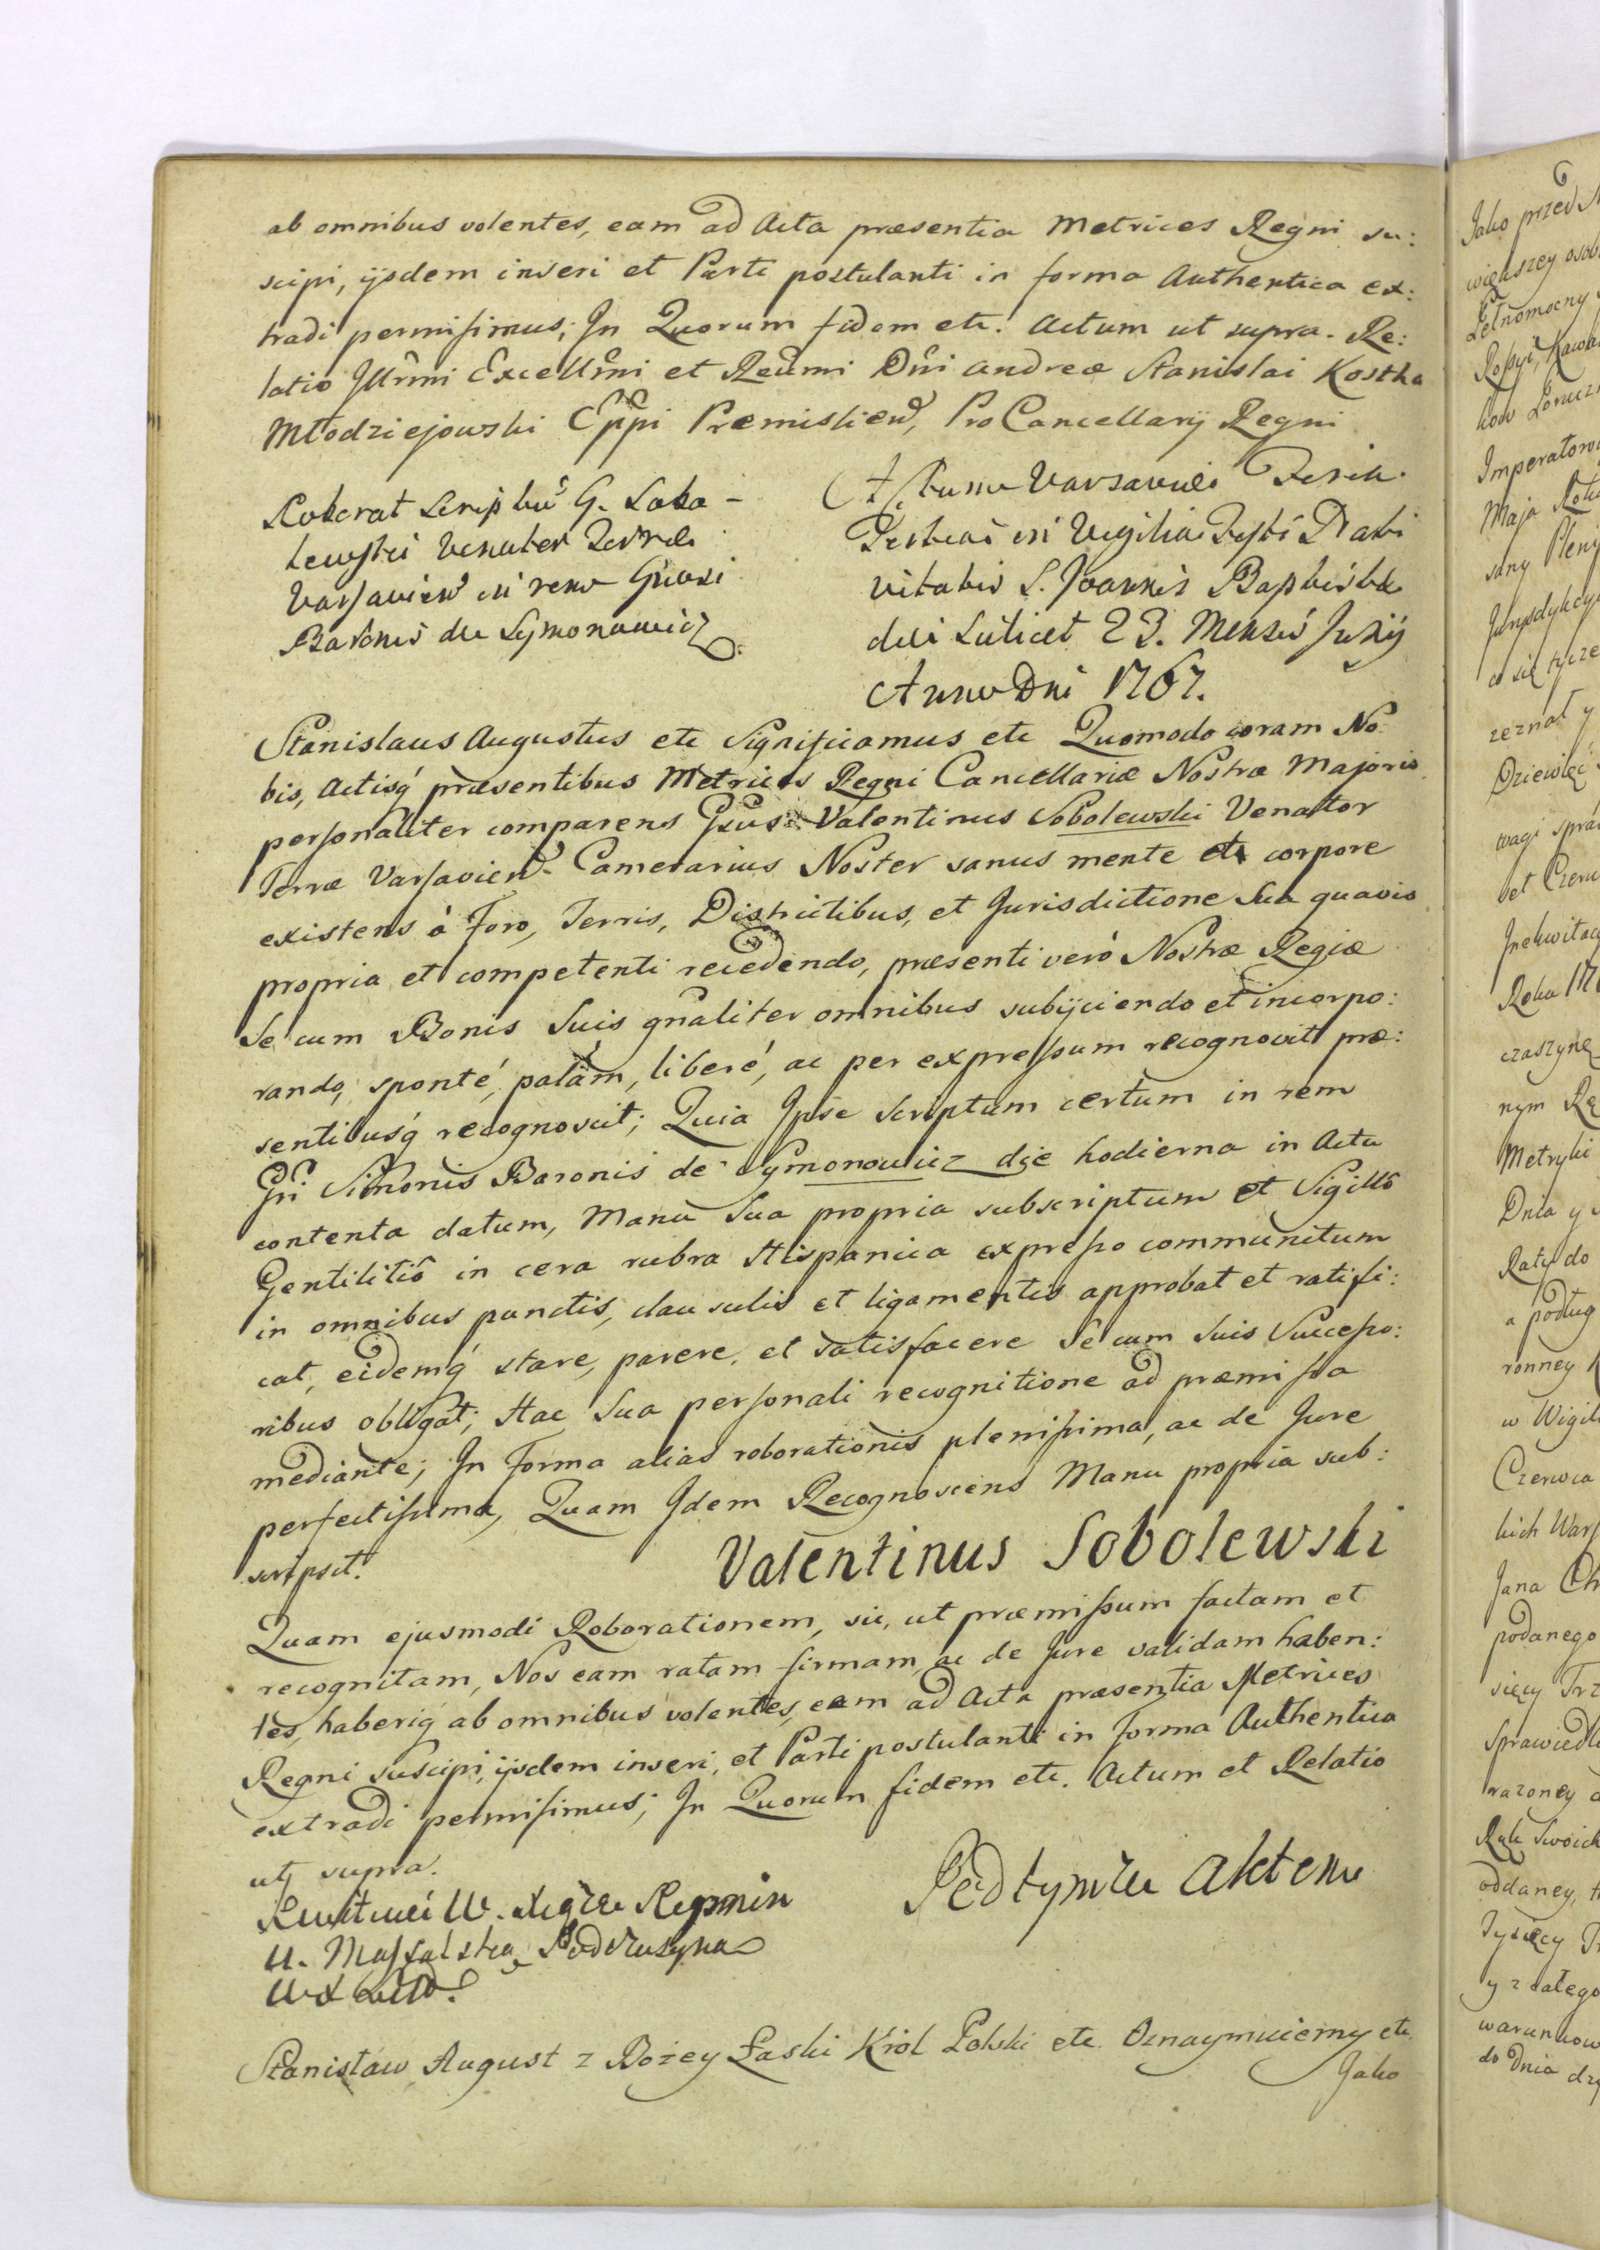 ab omnibus volentes, eam ad Acta præsentia Metrices Regni su:
scipi, ijsdem inseri et Parti postulanti in forma Authentica ex:
tradi permisimus; In Quorum fidem etc. Actum ut supra. Re:
latio Illrmi Excellmi et Reumi Dni Andreæ Stanislai Kostka
Młodziejowski Eppi Præmislien, ProCancellarij Regni
Roborat Scriptū G. Sobo-
lewski Venator Terræ
Varsavien in rem Gnosi
Baronis de Symonowicz.
Actum Varsaviæ Feria
Tertia in Vigilia Festi Nati
vitatis S. Joannis Baptistæ
die scilicet 23. Mensis Junij
Anno Dni 1767.
Stanislaus Augustus etc Significamus etc Quomodo coram No
bis, Actisq́ præsentibus Metrices Regni Cancellariæ Nostræ Majoris
personaliter comparens Gsus Valentinus Sobolewski Venator
Terræ Varsavien Camerarius Noster sanus mente et corpore
existens à Foro, Terris, Districtibus, et Jurisdictione Sua quavis
propria et competenti recedendo, præsenti verò Nostræ Regiæ
Se cum Bonis Suis gnaliter omnibus subijciendo et incorpo:
rando, sponté, palàm, liberé, ac per expressum recognovit præ:
sentibusq́ recognoscit; Quia Ipse Scriptum certum in rem
Gsi Simonis Baronis de Symonowicz die hodierna in Acta
contenta datum, Manu Sua propria subscriptum et Sigillô
Gentilitiô in cera rubra Hispanica expresso communitum
in omnibus punctis, clausulis et ligamentis approbat et ratifi:
cat, eidemq́ stare, parere, et satisfacere Se cum Suis Successo:
ribus obligat; Hac Sua personali recognitione ad præmissa
mediante; In Forma alias roborationis plenissima, ac de Jure
perfectissima, Quam Idem Recognoscens Manu propria sub:
scripsit.
Valentinus Sobolewski
Quam ejusmodi Roborationem, sic, ut præmissum factam et
recognitam, Nos eam ratam firmam ac de Jure validam haben:
tes, haberiq́ ab omnibus volentes, eam ad Acta præsentia Metrices
Regni Suscipi, ijsdem inseri, et Parti postulanti in Forma Authentica
extradi permisimus; In Quorum fidem etc. Actum et Relatio
ut supra.
Kwituie W. Xiąże Repnin
U. Massalską Podczaszyną
W X Litt.
Pod tymże Aktem
Stanisław August z Bożey Łaski Król Polski etc. Oznaymuiemy etc.
Jako
Jako przed
większey
Pełnomocny
Rossyi, Kawal
ków
Imperatorow
Maja
sany
Jurysdykcyi
co się tycze
zeznał y
Dziewięć
wagi
et
Roku
czaszynę
nym
Metryki
Dnia y
Raty do
a podług
ronney
w Wigili
Czerwca
kich Wars
Jana Ch
podanego
sięcy Trz
Sprawiedl
razoney
Rąk Swoich
oddaney,
Tysięcy
y z całego
warunkow
do Dnia